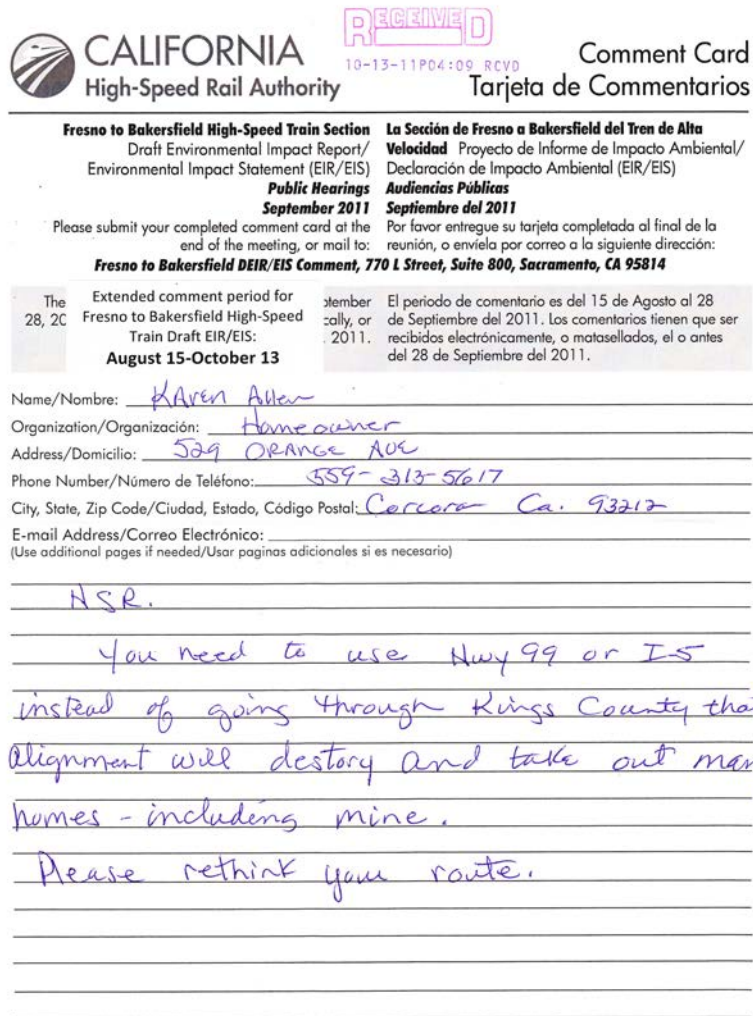 RECEIVED
10-13-11P04:09 RCVD
CALIFORNIA
High-Speed Rail Authority
Comment Card
Tarjeta de Commentarios
Fresno to Bakersfield High-Speed Train Section
Draft Environmental Impact Report/
Environmental Impact Statement (EIR/EIS)
Public Hearings
September 2011
Please submit your completed comment card at the
end of the meeting, or mail to:
La Sección de Fresno a Bakersfield del Tren de Alta
Velocidad Proyecto de Informe de Impacto Ambiental/
Declaración de Impacto Ambiental (EIR/EIS)
Audiencias Públicas
Septiembre del 2011
Por favor entregue su tarjeta completada al final de la
reunión, o envíela por correo a la siguiente dirección:
Fresno to Bakersfield DEIR/EIS Comment, 770 L Street, Suite 800, Sacramento, CA 95814
The
28, 20
Extended comment period for
Fresno to Bakersfield High-Speed
Train Draft EIR/EIS:
August 15-October 13
tember
cally, or
2011.
El periodo de comentario es del 15 de Agosto al 28
de Septiembre del 2011. Los comentarios tienen que ser
recibidos electrónicamente, o matasellados, el o antes
del 28 de Septiembre del 2011.
Name/Nombre: KAren Allen
Organization/Organización: Homeowner
Address/Domicilio: 529 ORANGE AVE
Phone Number/Número de Teléfono: 559-313-5617
City, State, Zip Code/Ciudad, Estado, Código Postal: Corcoran Ca. 93212
E-mail Address/Correo Electrónico:
(Use additional pages if needed/Usar paginas adicionales si es necesario)
HSR.
You need to use Hwy 99 or I-5
instead of going through Kings County tha
alignment will destory and take out man
homes - including mine.
Please rethink your route.